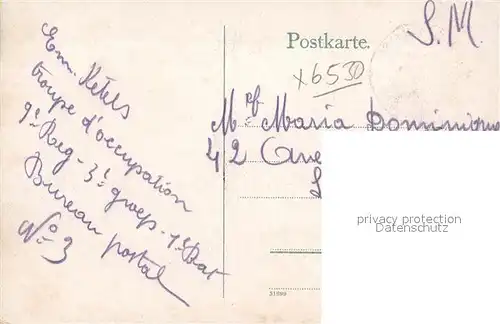 Postkarte.
S. M.
x6530
Em. Ketels
troupe d'occupation
9e Reg - 3e groep - 1e Bat
Bureau postal
No 3
Maria
42 Ave
privacy protection
Datenschutz
31999